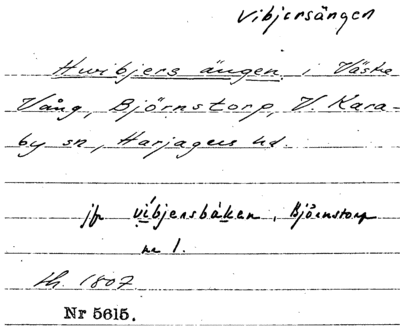 Vibjersängen
Hwibjers ängen i Västre
Vång, Björnstorp, V. Kara-
by sn, Harjagers hd.
jfr vibjersbäken, Björnstorp
nr 1.
Lh. 1807.
Nr 5615.